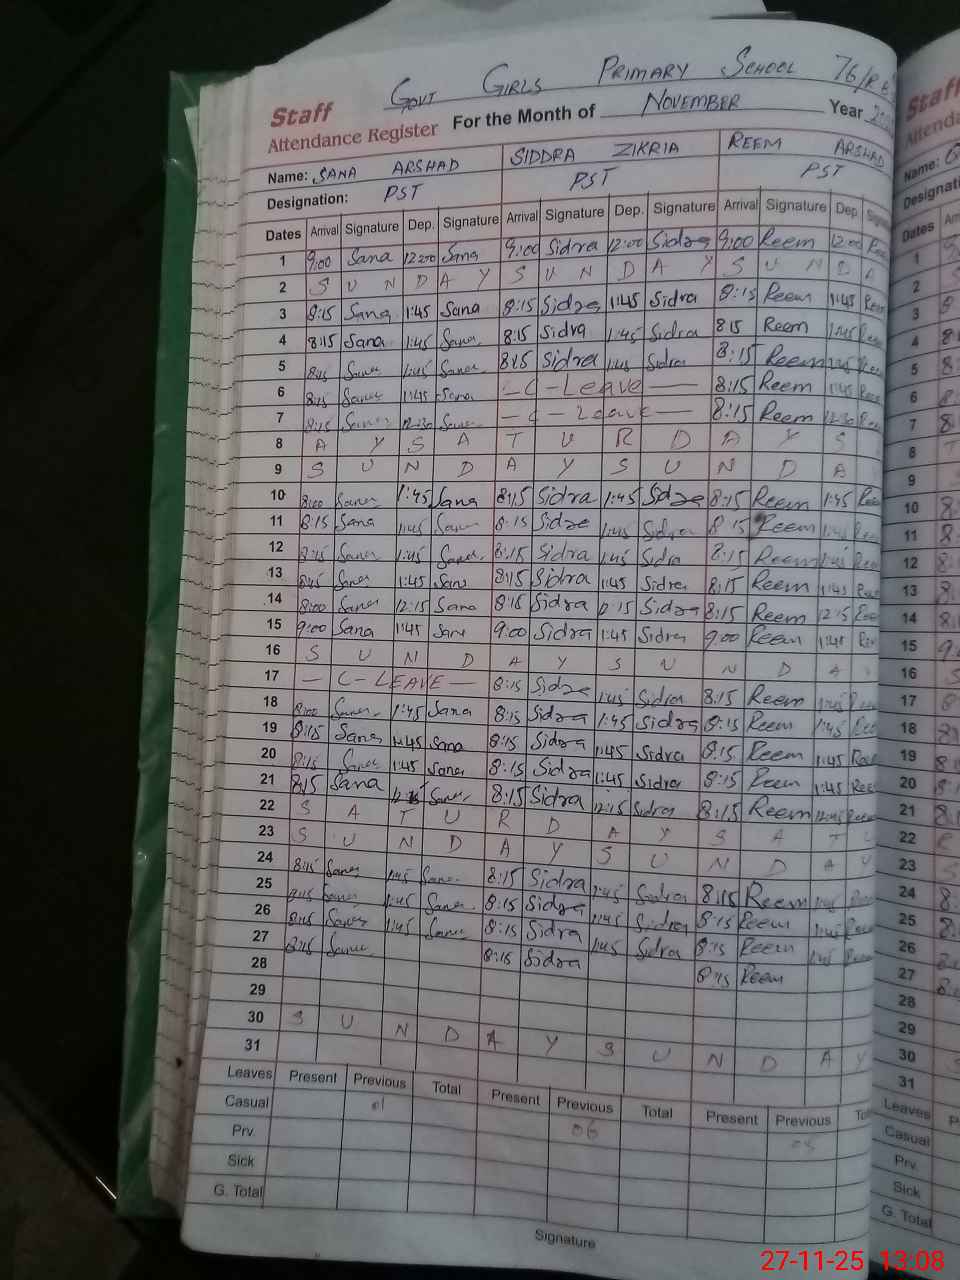 GOVT GIRLS PRIMARY SCHOOL 76/R B
Staff
Attendance Register For the Month of NOVEMBER Year
Name: SANA ARSHAD SIDDRA ZIKRIA REEM ARSHAD
Designation: PST PST PST
Dates Arrival Signature Dep. Signature Arrival Signature Dep. Signature Arrival Signature Dep
1 9:00 Sana 12:00 Sana 9:00 Sidra 12:00 Sidra 9:00 Reem 12:00 Reem
2 S U N D A Y S U N D A Y S U N D A
3 8:15 Sana 1:45 Sana 8:15 Sidra 1:45 Sidra 8:15 Reem 1:45 Reem
4 8:15 Sana 1:45 Sana 8:15 Sidra 1:45 Sidra 8:15 Reem 1:45 Reem
5 8:15 Sana 1:45 Sana 8:15 Sidra 1:45 Sidra 8:15 Reem 1:45 Reem
6 8:15 Sana 1:45 Sana - C - Leave - 8:15 Reem 1:45 Reem
7 8:15 Sana 12:30 Sana - C - Leave - 8:15 Reem 12:30 Reem
8 A Y S A T U R D A Y S
9 S U N D A Y S U N D A
10 8:00 Sana 1:45 Sana 8:15 Sidra 1:45 Sidra 8:15 Reem 1:45 Reem
11 8:15 Sana 1:45 Sana 8:15 Sidra 1:45 Sidra 8:15 Reem 1:45 Reem
12 8:15 Sana 1:45 Sana 8:15 Sidra 1:45 Sidra 8:15 Reem 1:45 Reem
13 8:15 Sana 1:45 Sana 8:15 Sidra 1:45 Sidra 8:15 Reem 1:45 Reem
14 8:00 Sana 12:15 Sana 8:15 Sidra 12:15 Sidra 8:15 Reem 12:15 Reem
15 9:00 Sana 1:45 Sana 9:00 Sidra 1:45 Sidra 9:00 Reem 1:45 Reem
16 S U N D A Y S U N D A
17 - C - LEAVE - 8:15 Sidra 1:45 Sidra 8:15 Reem 1:45 Reem
18 8:00 Sana 1:45 Sana 8:15 Sidra 1:45 Sidra 8:15 Reem 1:45 Reem
19 8:15 Sana 1:45 Sana 8:15 Sidra 1:45 Sidra 8:15 Reem 1:45 Reem
20 8:15 Sana 1:45 Sana 8:15 Sidra 1:45 Sidra 8:15 Reem 1:45 Reem
21 8:15 Sana 12:15 Sana 8:15 Sidra 12:15 Sidra 8:15 Reem Reem
22 S A T U R D A Y S A T U
23 S U N D A Y S U N D A Y
24 8:15 Sana 1:45 Sana 8:15 Sidra 1:45 Sidra 8:15 Reem 1:45 Reem
25 8:15 Sana 1:45 Sana 8:15 Sidra 1:45 Sidra 8:15 Reem 1:45 Reem
26 8:15 Sana 1:45 Sana 8:15 Sidra 1:45 Sidra 8:15 Reem 1:45 Reem
27 8:15 Sana 8:15 Sidra 8:15 Reem
28
29
30 S U N D A Y S U N D A Y
31
Leaves Present Previous Total Present Previous Total Present Previous
Casual 01 06
Prv.
Sick
G. Total
Signature
Staff
Name:
Dates
1
2
3
4
5
6
7
8
9
10
11
12
13
14
15
16
17
18
19
20
21
22
23
24
25
26
27
28
29
30
31
Leaves
Casual
Prv.
Sick
G. Total
27-11-25 13:08